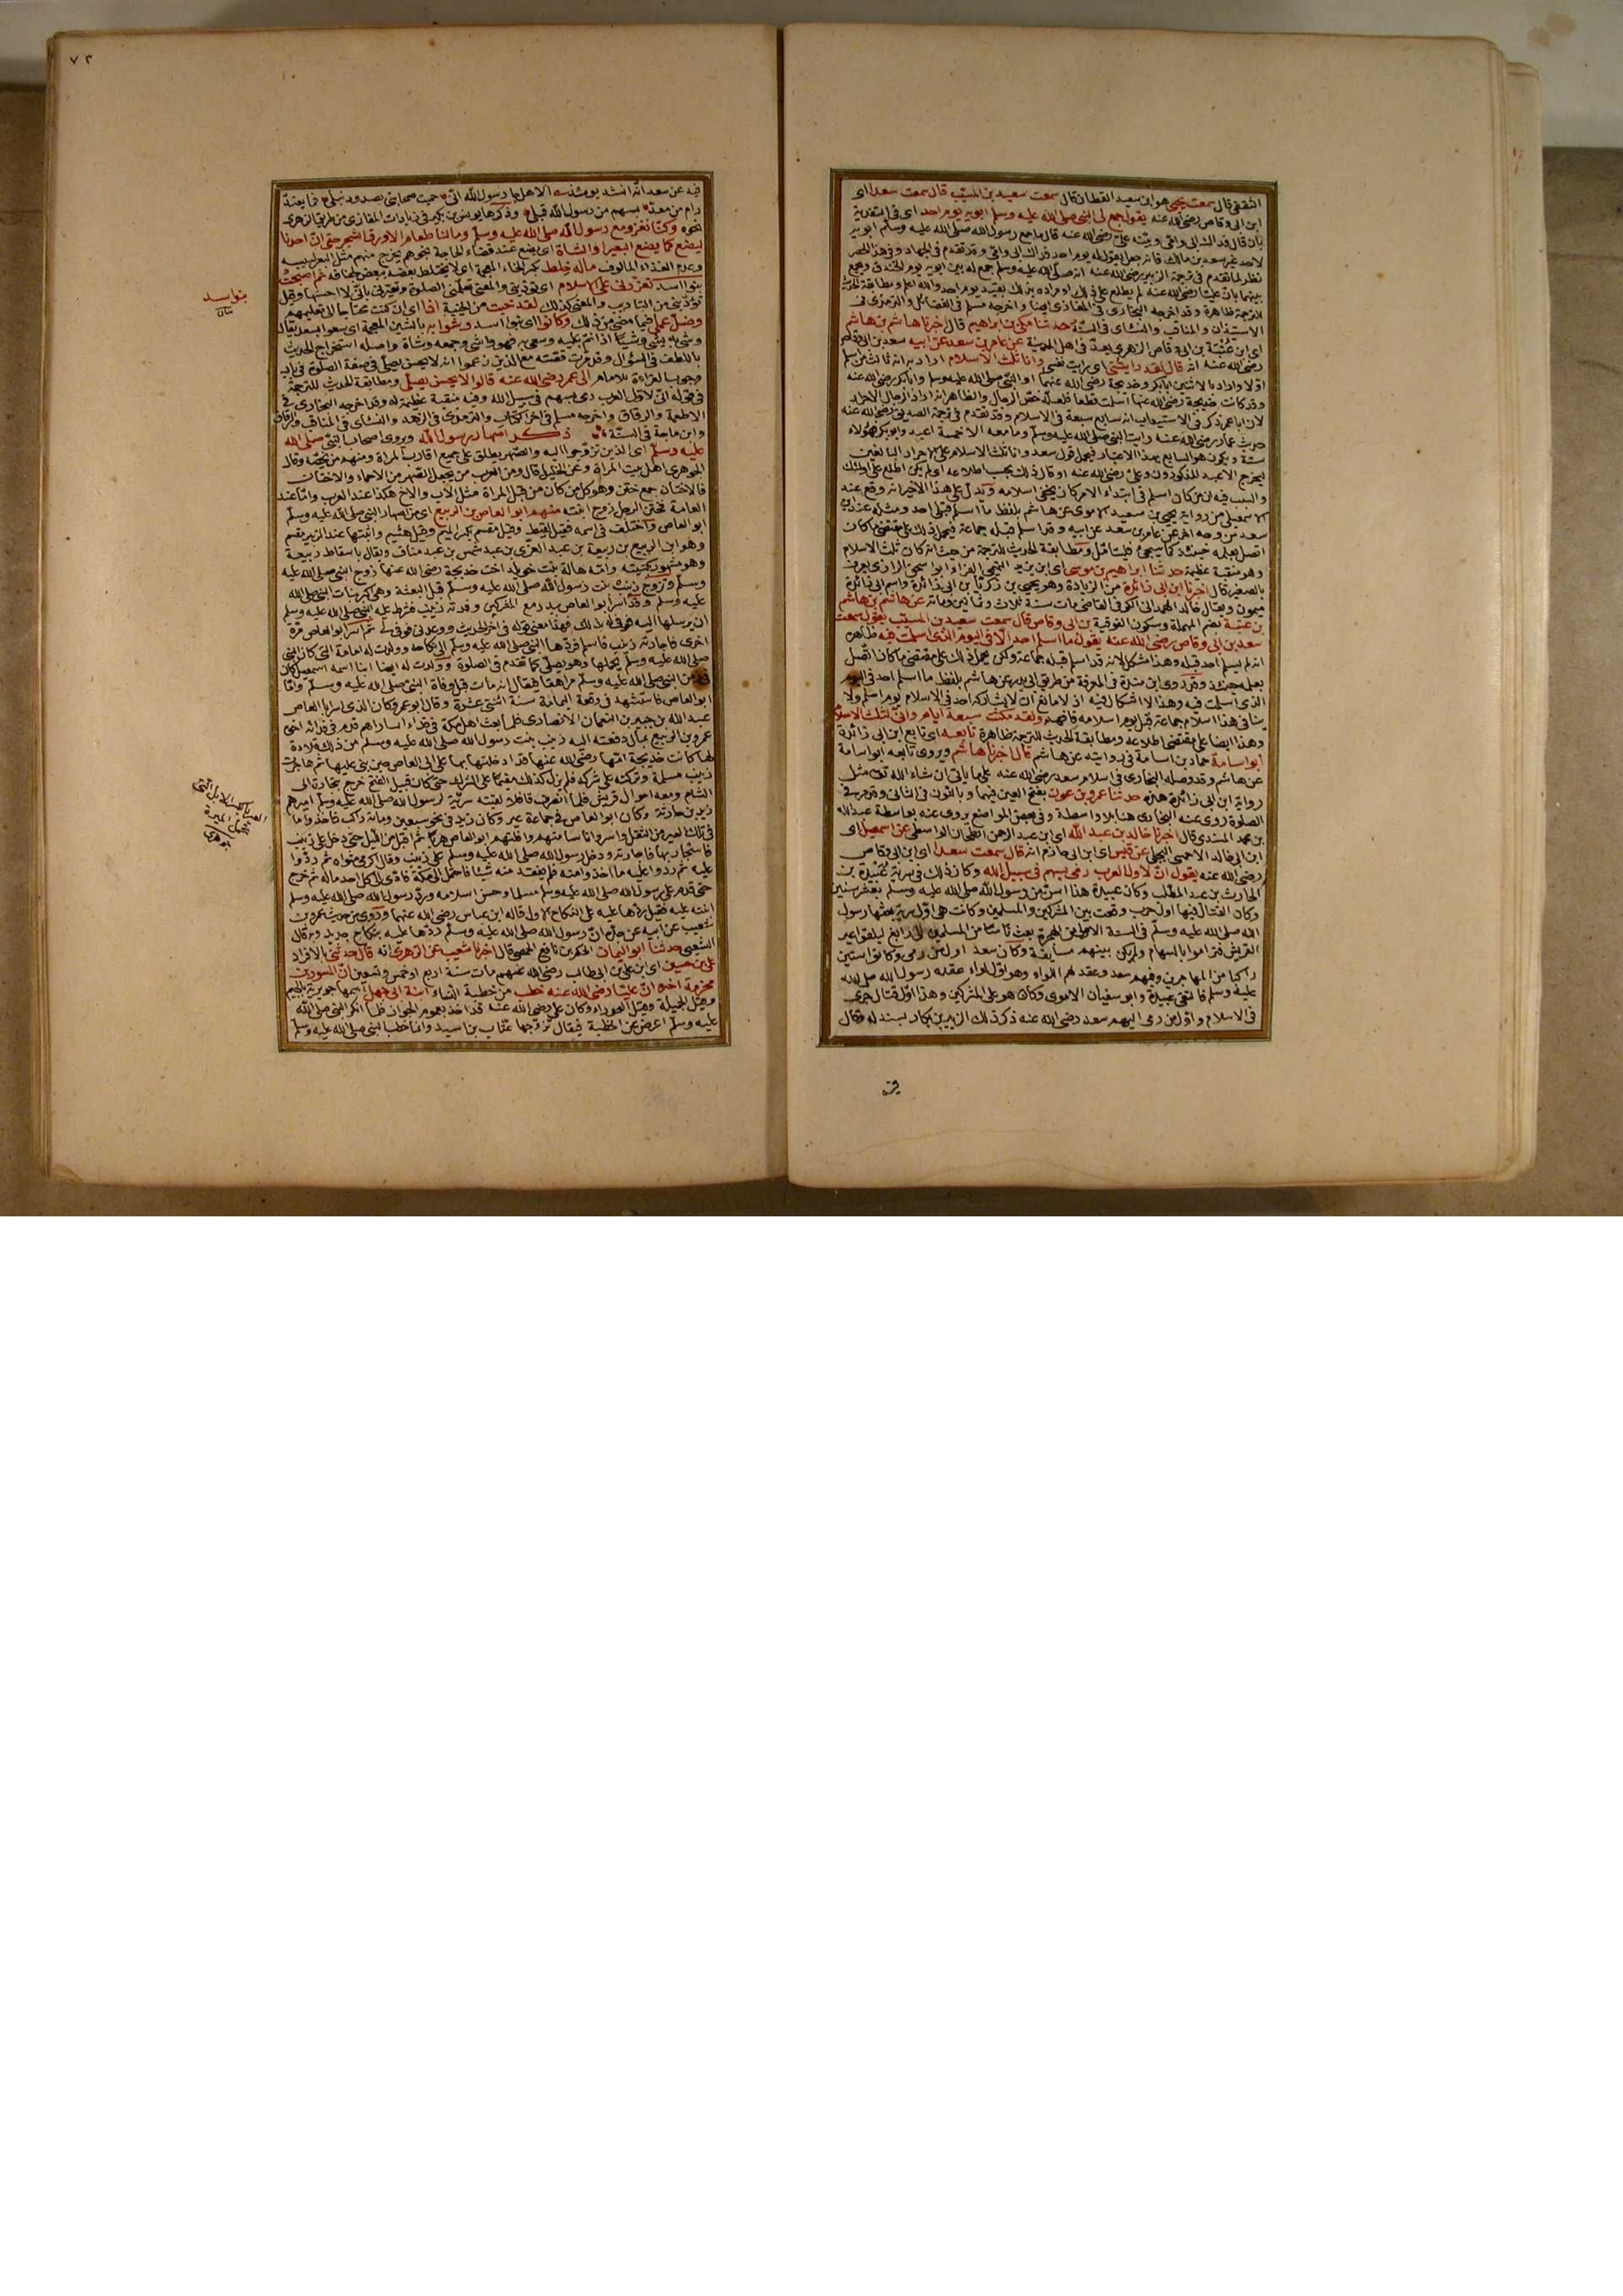 الثقفي قال سمعت يحيى هو ابن سعيد القطان قال سمعت سعيد بن المسيب قال سمعت سعدا اى
ابن ابى وقاص رضى الله عنه يقول جمع لى النبى صلى الله عليه وسلم ابويه يوم احد اى فى التفدية
بان قال فداك ابى وامى وعن على رضى الله عنه قال ما جمع رسول الله صلى الله عليه وسلم ابويه
لاحد غير سعد بن مالك فانه جعل يقول له يوم احد فداك ابى وامى وقد تقدم فى الجهاد وفى هذا الحصر
نظر لما تقدم فى ترجمة الزبير رضى الله عنه انه صلى الله عليه وسلم جمع له بين ابويه يوم الخندق ويجمع
بينهما بان عليا رضى الله عنه لم يطلع على ذلك او مراده بذلك بقيد يوم احد والله اعلم ومطابقة الحديث
للترجمة ظاهرة وقد اخرجه البخارى فى المغازى ايضا واخرجه مسلم فى الفضائل والترمذى فى
الاستيذان والمناقب والنسائى فى السنة حدثنا مكى بن ابراهيم قال اخبرنا هاشم بن هاشم
اى ابن عتبة بن ابى وقاص الزهرى يعد فى اهل المدينة عن عامر بن سعد عن ابيه سعد بن ابى وقاص
رضى الله عنه انه قال لقد رايتنى اى رايت نفسى وانا ثلث الاسلام اراد به انه ثالث من اسلم
اولا واراد بالاثنين ابابكر وخديجة رضى الله عنهما او النبى صلى الله عليه وسلم وابابكر رضى الله عنه
وقد كانت خديجة رضى الله عنها اسلمت قطعا فلعله خص الرجال والظاهر انه اراد الرجال الاحرار
لان اباعمر ذكر فى الاستيعاب انه سابع سبعة فى الاسلام وقد تقدم فى ترجمة الصديق رضى الله عنه
حديث عمار رضى الله عنه رايت النبى صلى الله عليه وسلم وما معه الا خمسة اعبد وابو بكر فهؤلاء
ستة ويكون هو السابع بهذا الاعتبار فيحمل قول سعد وانا ثلث الاسلام على الاحرار البالغين
ليخرج الاعبد المذكورون وعلى رضى الله عنه او قال ذلك بحسب اطلاعه او لم يكن اطلع على اولئك
والسبب فيه ان من كان اسلم فى ابتداء الامر كان يخفى اسلامه ويدل على هذا الاخير انه وقع عند
الاسمعيلى من رواية يحيى بن سعيد الاموى عن هاشم بلفظ ما اسلم احد قبلى ومثله عند ابن
سعد من وجه اخر عن عامر بن سعد عن ابيه وقد اسلم قبله جماعة فيحمل ذلك على مقتضى ما كان
اتصل بعلمه حينئذ كما سيجئ فليتامل ومطابقة الحديث للترجمة من حيث انه كان ثلث الاسلام
وهو منقبة عظيمة حدثنا ابراهيم بن موسى اى ابن يزيد التميمى الفراء ابو اسحق الرازى يعرف
بالصغير قال اخبرنا ابن ابى زائدة من الزيادة وهو يحيى بن زكريا بن ابى زائدة واسم ابى زائدة
ميمون ويقال خالد الهمدانى الكوفى القاضى مات سنة ثلاث وثمانين ومائة عن هاشم بن هاشم
بن عتبة بضم المهملة وسكون الفوقية بن ابى وقاص قال سمعت سعيد بن المسيب يقول سمعت
سعد بن ابى وقاص رضى الله عنه يقول ما اسلم احد الا فى اليوم الذى اسلمت فيه ظاهره
انه لم يسلم احد قبله وهذا مشكل لانه قد اسلم قبله جماعة ولكن يحمل ذلك على مقتضى ما كان اتصل
بعلمه حينئذ وقد روى ابن مندة فى المعرفة من طريق ابى بدر عن هاشم بلفظ ما اسلم احد فى اليوم
الذى اسلمت فيه وهذا لا اشكال فيه اذ لا مانع ان لا يشاركه احد فى الاسلام يوم اسلم ولا
ينافى هذا اسلام جماعة قبل يوم اسلامه فافهم ولقد مكثت سبعة ايام وانى لثلث الاسلام
وهذا ايضا على مقتضى اطلاعه ومطابقة الحديث للترجمة ظاهرة تابعه اى تابع ابن ابى زائدة
ابو اسامة حماد بن اسامة فى روايته عن هاشم قال اخبرنا هاشم ويروى تابعه ابو اسامة
عن هاشم وقد وصله البخارى فى اسلام سعد رضى الله عنه على ما ياتى ان شاء الله تعالى مثل
رواية ابن ابى زائدة هذه حدثنا عمرو بن عون بفتح العين فيهما وبالنون فى الثانى وقد مر فى
الصلوة روى عنه البخارى هنا بلا واسطة وفى بعض المواضع يروى عنه بواسطة عبد الله
بن محمد المسندى قال اخبرنا خالد بن عبد الله اى ابن عبد الرحمن الطحان الواسطى عن اسمعيل اى
ابن ابى خالد الاحمسى البجلى عن قيس اى ابن ابى حازم انه قال سمعت سعدا اى ابن ابى وقاص
رضى الله عنه يقول انى لاول العرب رمى بسهم فى سبيل الله وكان ذلك فى سرية عبيدة بن
الحارث بن عبد المطلب وكان عبيدة هذا اسن من رسول الله صلى الله عليه وسلم بعشر سنين
وكان القتال فيها اول حرب وقعت بين المشركين والمسلمين وكانت هى اول سرية بعثها رسول
الله صلى الله عليه وسلم فى السنة الاولى من الهجرة بعث ناسا من المسلمين الى رابغ ليلقوا عير
القريش فتراموا بالسهام ولم يكن بينهم مسايفة وكان سعد اول من رمى وكانوا ستين
راكبا من المهاجرين وفيهم سعد وعقد لهم اللواء وهو اول لواء عقده رسول الله صلى الله
عليه وسلم فالتقى عبيدة وابو سفيان الاموى وكان هو على المشركين وهذا اول قتال جرى
فى الاسلام واول من رمى اليهم سعد رضى الله عنه ذكر ذلك الزبير بن بكار بسند له وقال
٧٣
فيه عن سعد انه انشد يومئذ الا هل جا رسول الله انى حميت صحابتى بصدور نبلى فما يعتد
رام من معد بسهم من رسول الله قبلى وذكرها يونس بن بكير فى زيادات المغازى من طريق الزهرى
نحوه وكنا نغزو مع رسول الله صلى الله عليه وسلم وما لنا طعام الا ورق الشجر حتى ان احدنا
ليضع كما يضع البعير او الشاة اى يضع عند قضاء الحاجة يخرج منهم مثل البعر ليبسه
وعدم الغذاء المالوف ماله خلط بكسر الخاء المعجمة اى لا يختلط بعضه ببعض لجفافه ثم اصبحت
بنو اسد تعزرنى على الاسلام اى تؤدبنى والمعنى تعلمنى الصلوة وتعيرنى بانى لا احسنها وقيل
تؤدبنى من التاديب والمعنى كذلك لقد خبت من الخيبة اذا اى ان كنت محتاجا الى تعليمهم
وضل عملى فيما مضى من ذلك وكانوا اى بنو اسد وشوا به بالشين المعجمة اى سعوا بسعد يقال
وشى به يشى وشيا اذا نم عليه وسعى به فهو واش وجمعه وشاة واصله استخراج الحديث
باللطف فى السؤال وقد مرت قصته مع الذين زعموا انه لا يحسن يصلى فى صفة الصلوة فى باب
وجوب القراءة للامام الى عمر رضى الله عنه قالوا لا يحسن يصلى ومطابقة الحديث للترجمة
فى قوله انى لاول العرب رمى بسهم فى سبيل الله وفيه منقبة عظيمة له وقد اخرجه البخارى فى
الاطعمة والرقاق واخرجه مسلم فى اخر الكتاب والترمذى فى الزهد والنسائى فى المناقب والرقاق
وابن ماجة فى السنة ذكر اصهار رسول الله ويروى اصحاب النبى صلى الله
عليه وسلم اى الذين تزوجوا اليه والصهر يطلق على جميع اقارب المراة ومنهم من يخصه وقال
الجوهرى اهل بيت المراة وعن الخليل قال ومن العرب من يجعل الصهر من الاحماء والاختان
فالاختان جمع ختن وهو كل من كان من قبل المراة مثل الاب والاخ هكذا عند العرب واما عند
العامة فختن الرجل زوج ابنته منهم ابو العاص بن الربيع اى من اصهار النبى صلى الله عليه وسلم
ابو العاص واختلف فى اسمه فقيل لقيط وقيل مقسم بكسر الميم وقيل هشيم واثبتها عند الزبير مقسم
وهو ابن الربيع بن ربيعة بن عبد العزى بن عبد شمس بن عبد مناف ويقال باسقاط ربيعة
وهو مشهور بكنيته وامه هالة بنت خويلد اخت خديجة رضى الله عنها زوج النبى صلى الله عليه
وسلم وتزوج زينب بنت رسول الله صلى الله عليه وسلم قبل البعثة وهى اكبر بنات النبى صلى الله
عليه وسلم وقد اسر ابو العاص ببدر مع المشركين وفدته زينب فشرط عليه النبى صلى الله عليه وسلم
ان يرسلها اليه فوفى له بذلك فهذا معنى قوله فى اخر الحديث ووعدنى فوفى لى ثم اسر ابو العاص مرة
اخرى فاجارته زينب فاسلم فردها النبى صلى الله عليه وسلم الى نكاحه وولدت له امامة التى كان النبى
صلى الله عليه وسلم يحملها وهو يصلى كما تقدم فى الصلوة وولدت له ايضا ابنا اسمه
النبى صلى الله عليه وسلم مراهقا فيقال انه مات قبل وفاة النبى صلى الله عليه وسلم واما
ابو العاص فاستشهد فى وقعة اليمامة سنة اثنتى عشرة وقال ابو عمر وكان الذى اسر ابا العاص
عبد الله بن جبير بن النعمان الانصارى فلما بعث اهل مكة فى فداء اساراهم قدم فى فدائه اخوه
عمرو بن الربيع بمال دفعته اليه زينب بنت رسول الله صلى الله عليه وسلم من ذلك قلادة
لها كانت خديجة امها رضى الله عنها قد ادخلتها بها على ابى العاص حين بنى عليها ثم هاجرت
زينب مسلمة وتركته على شركه فلم يزل كذلك مقيما على الشرك حتى كان قبيل الفتح خرج بتجارة الى
الشام ومعه اموال قريش فلما انصرف قافلا لقيته سرية لرسول الله صلى الله عليه وسلم اميرهم
زيد بن حارثة وكان ابو العاص فى جماعة عير وكان زيد فى نحو سبعين ومائة راكب فاخذوا ما
فى تلك العير من الثقل واسروا ناسا منهم وافلتهم ابو العاص هربا ثم اقبل من الليل حتى دخل على زينب
فاستجار بها فاجارته ودخل رسول الله صلى الله عليه وسلم على زينب وقال اكرمى مثواه ثم ردوا
عليه ما اخذوا منه فلم يفقد منه شيئا فاحتمل الى مكة فادى الى كل احد ماله ثم خرج
حتى قدم على رسول الله صلى الله عليه وسلم مسلما وحسن اسلامه ورد رسول الله صلى الله عليه وسلم
ابنته عليه فقيل ردها عليه على النكاح الاول قاله ابن عباس رضى الله عنهما وروى من حديث عمرو بن
شعيب عن ابيه عن جده ان رسول الله صلى الله عليه وسلم ردها عليه بنكاح جديد وبه قال
الشعبى حدثنا ابو اليمان الحكم بن نافع الحمصى قال اخبرنا شعيب عن الزهرى انه قال حدثنى بالافراد
على بن حسين اى ابن على بن ابى طالب رضى الله عنهم مات سنة اربع او خمس وتسعين ان المسور بن
مخرمة اخبره ان عليا رضى الله عنه خطب من خطبة النساء ابنة ابى جهل اسمها جويرية بالجيم
وقيل الجميلة وقيل العوراء وكان على رضى الله عنه قد اخذ بعموم الجواز فلما انكر النبى صلى الله
عليه وسلم اعرض عن الخطبة فيقال تزوجها عتاب بن اسيد وانما خطب النبى صلى الله عليه وسلم
بنو اسد